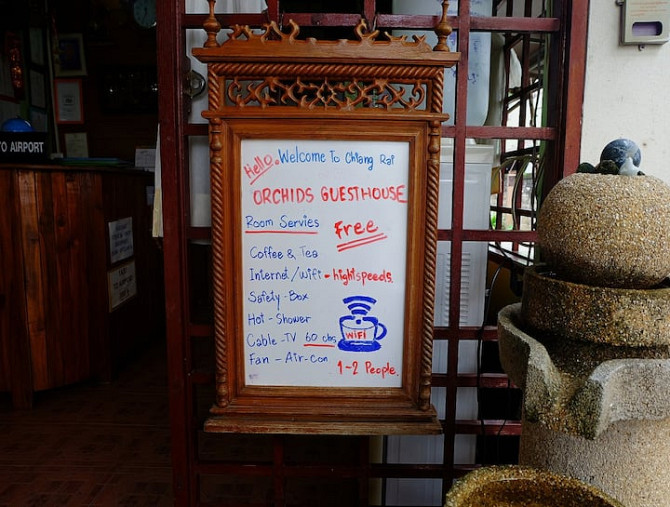 Hello. Welcome To Chiang Rai
ORCHIDS GUESTHOUSE
Room Servies Free
Coffee & Tea
Internet/Wifi - hightspeeds.
Safety-Box
Hot-Shower
Cable-TV 60 chs
WiFi
Fan - Air-con
1-2 People.
TO AIRPORT